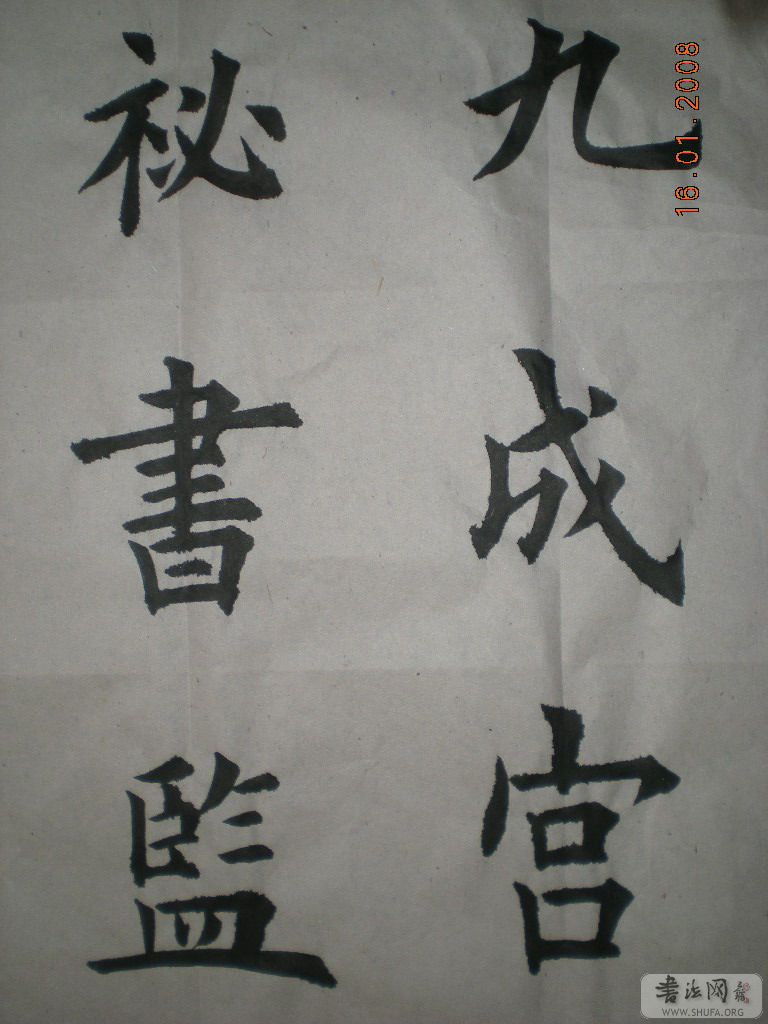 九成宫
祕書監
16.01.2008
书法网
WWW.SHUFA.ORG